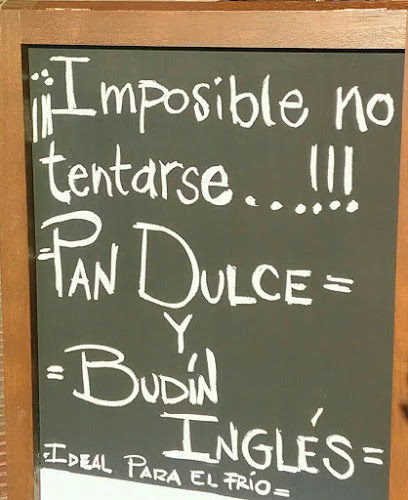 ¡¡¡Imposible no
tentarse......!!!
=PAN DULCE=
Y
=BUDÍN
INGLÉS=
=IDEAL PARA EL FRÍO=